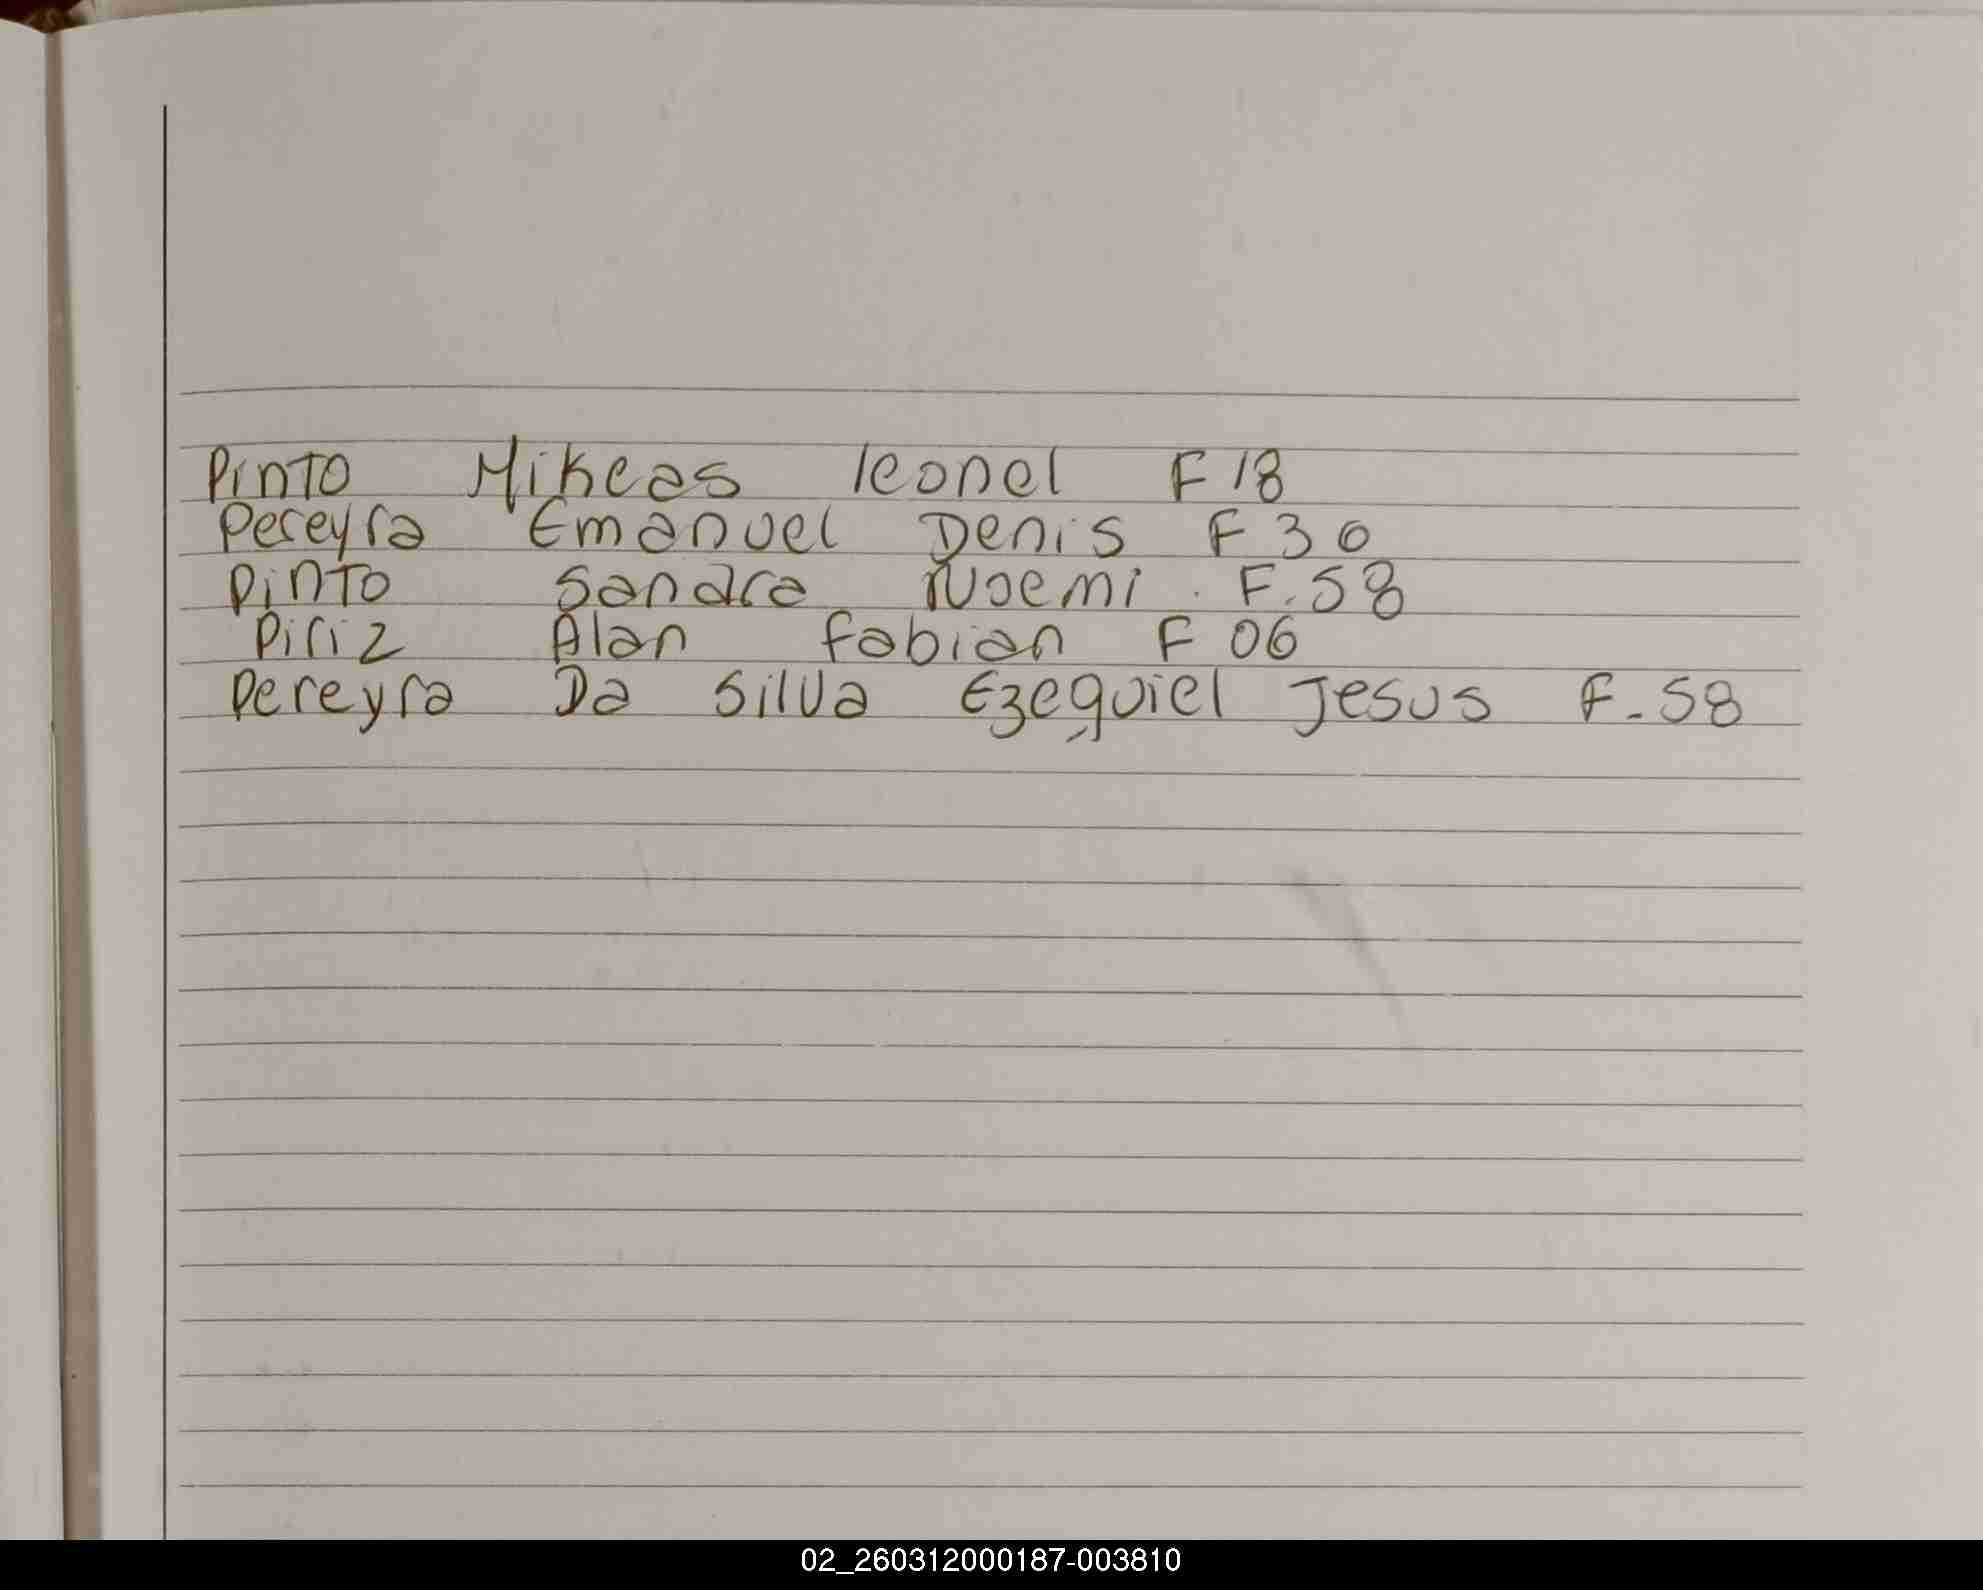 Pinto Mikeas leonel F 18
Pereyra Emanuel Denis F 30
Pinto Sandra Noemi . F. 58
Piriz Alan fabian F 06
Pereyra Da Silva Ezequiel Jesus F - 58
02_260312000187-003810